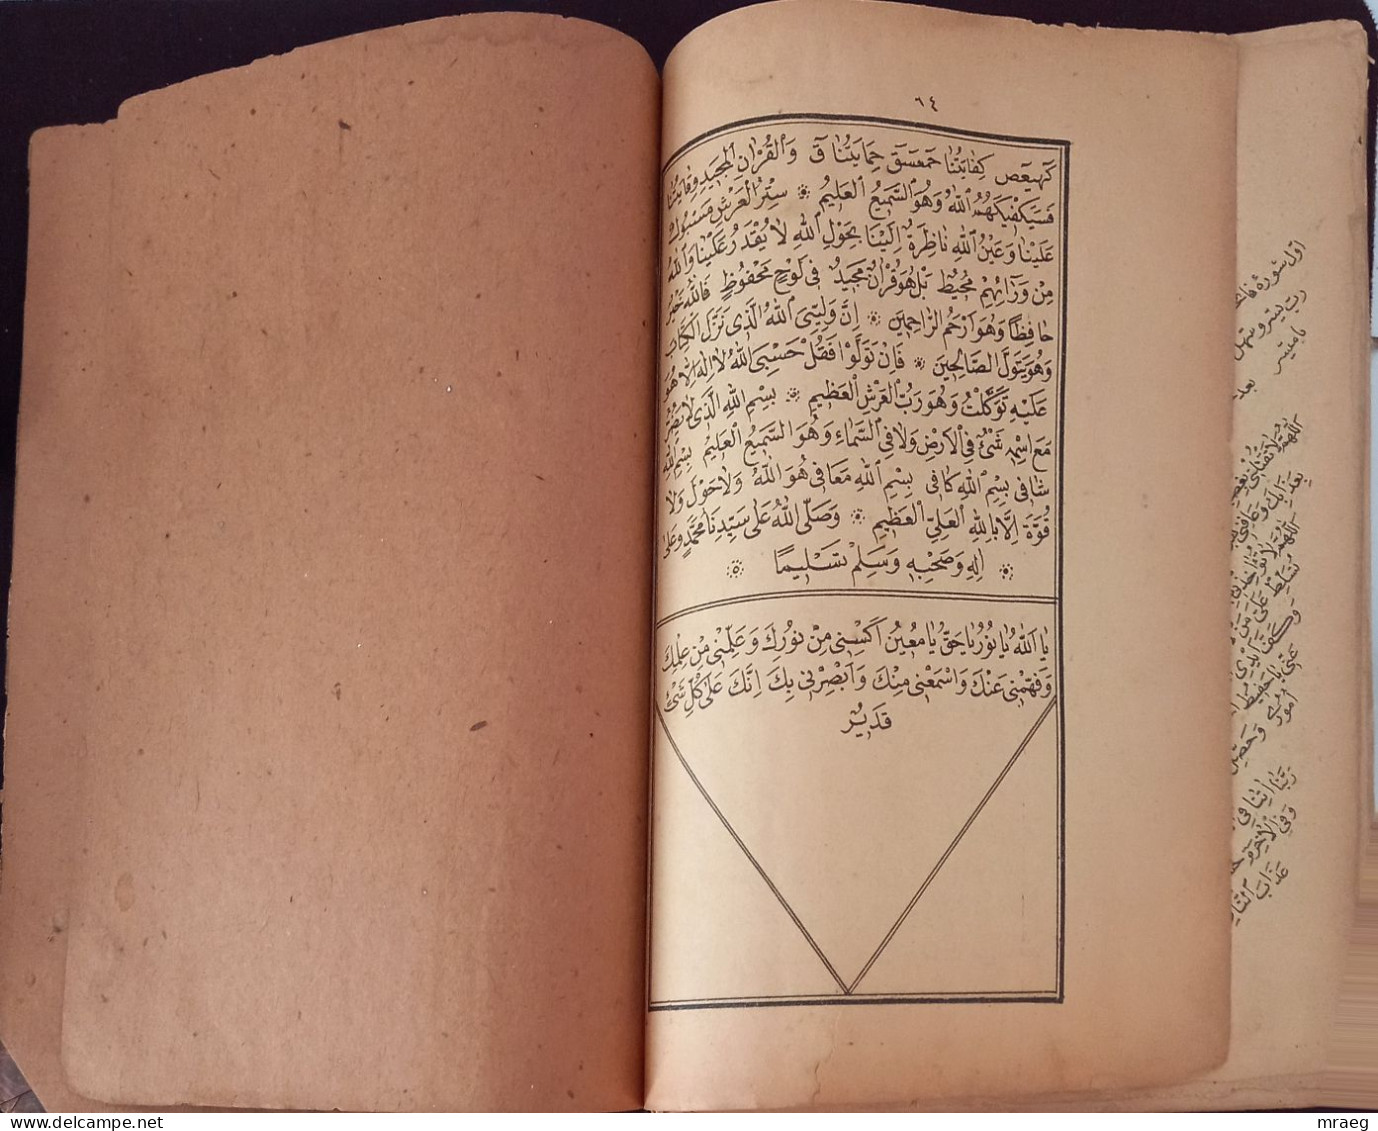 ٦٤
كهيعص كِفَايَتُنَا حمعسق حِمَايَتُنَا ق وَالْقُرْاٰنِ الْمَجِيدِ وِقَايَتُنَا
فَسَيَكْفِيكَهُمُ اللّٰهُ وَهُوَ السَّمِيعُ الْعَلِيمُ سِتْرُ الْعَرْشِ مَسْبُولٌ
عَلَيْنَا وَعَيْنُ اللّٰهِ نَاظِرَةٌ اِلَيْنَا بِحَوْلِ اللّٰهِ لَا يُقْدَرُ عَلَيْنَا وَاللّٰهُ
مِنْ وَرَائِهِمْ مُحِيطٌ بَلْ هُوَ قُرْاٰنٌ مَجِيدٌ فِى لَوْحٍ مَحْفُوظٍ فَاللّٰهُ خَيْرٌ
حَافِظًا وَهُوَ اَرْحَمُ الرَّاحِمِينَ اِنَّ وَلِيِّىَ اللّٰهُ الَّذِى نَزَّلَ الْكِتَابَ
وَهُوَ يَتَوَلَّى الصَّالِحِينَ فَاِنْ تَوَلَّوْا فَقُلْ حَسْبِىَ اللّٰهُ لَا اِلٰهَ اِلَّا هُوَ
عَلَيْهِ تَوَكَّلْتُ وَهُوَ رَبُّ الْعَرْشِ الْعَظِيمِ بِسْمِ اللّٰهِ الَّذِى لَا يَضُرُّ
مَعَ اسْمِهِ شَىْءٌ فِى الْاَرْضِ وَلَا فِى السَّمَاءِ وَهُوَ السَّمِيعُ الْعَلِيمُ بِسْمِ اللّٰهِ
شَافِى بِسْمِ اللّٰهِ كَافِى بِسْمِ اللّٰهِ مَعَافِى هُوَ اللّٰهُ وَلَا حَوْلَ وَلَا
قُوَّةَ اِلَّا بِاللّٰهِ الْعَلِىِّ الْعَظِيمِ وَصَلَّى اللّٰهُ عَلَى سَيِّدِنَا مُحَمَّدٍ وَعَلَى
اٰلِهِ وَصَحْبِهِ وَسَلِّمْ تَسْلِيمًا
يَا اَللّٰهُ يَا نُورُ يَا حَقُّ يَا مُعِينُ اَكْسِنِى مِنْ نُورِكَ وَعَلِّمْنِى مِنْ عِلْمِكَ
وَفَهِّمْنِى عَنْكَ وَاسْمَعْنِى مِنْكَ وَاَبْصِرْنِى بِكَ اِنَّكَ عَلَى كُلِّ شَىْءٍ
قَدِيرٌ
رب يسر و
يا ميسر
بعد
اللهم لا تقتلنى
اللهم لا
رَبَّنَا اٰتِنَا فِى
وَفِى الْاٰخِرَةِ
عَذَابَ النَّارِ
mraeg